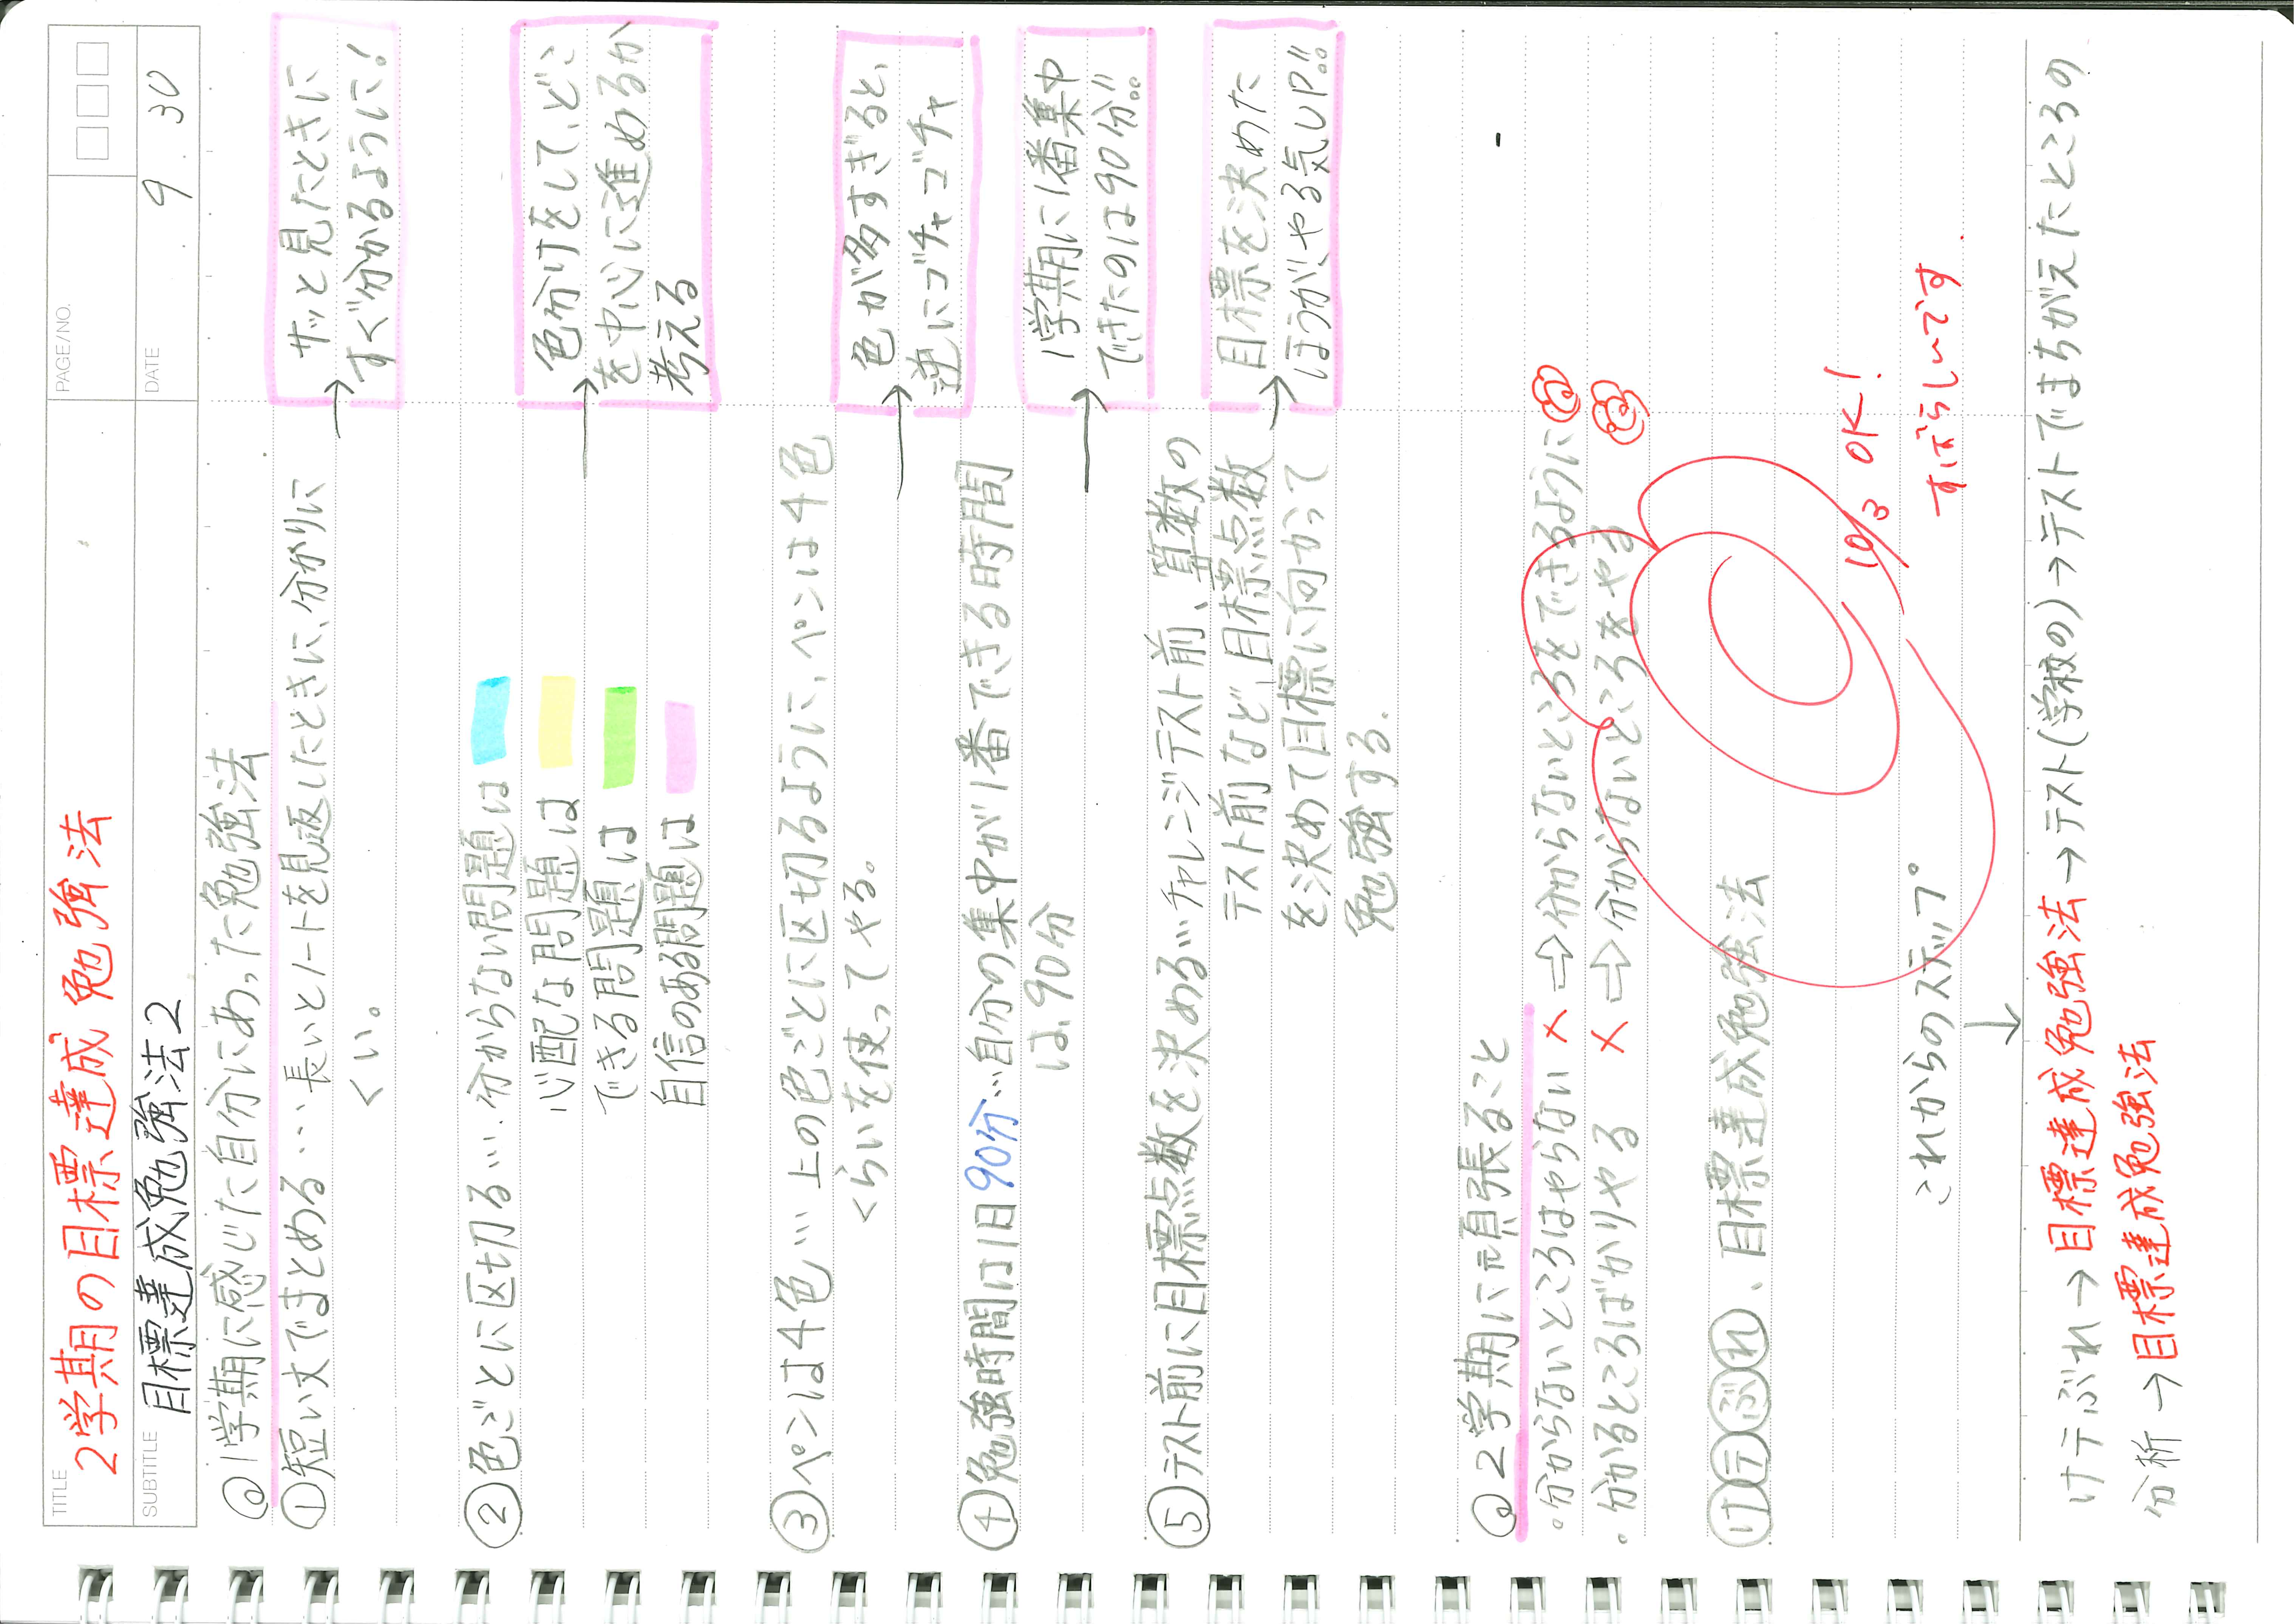 TITLE
2学期の目標達成勉強法
PAGE/NO.
SUBTITLE
目標達成勉強法2
DATE
9.30
◎1学期に感じた自分にあった勉強法
①短い文でまとめる…長いとノートを見返したときに、分かりに
くい。
→サッと見たときに
すぐ分かるように!
②色ごとに区切る…分からない問題は
心配な問題は
できる問題は
自信のある問題は
→色分けをして、どこ
を中心に進めるか
考える
③ペンは4色…上の色ごとに区切るように、ペンは4色
くらいを使ってやる。
→色が多すぎると、
逆にゴチャゴチャ
④勉強時間は1日90分…自分の集中が1番できる時間
は、90分
→1学期に1番集中
できたのは90分!!
⑤テスト前に目標点数を決める…チャレンジテスト前、算数の
テスト前など、目標点数
を決めて目標に向かって
勉強する。
→目標を決めた
ほうが、やる気UP!!
◎2学期に頑張ること
・分からないところはやらない×⇨分からないところをできるように
・分かるところばかりやる×⇨分からないところをやる
けテぶれ、目標達成勉強法
10/3 OK!
すばらしいです
これからのステップ°
↓
けテぶれ→目標達成勉強法→テスト(学校の)→テストでまちがえたところの
分析→目標達成勉強法